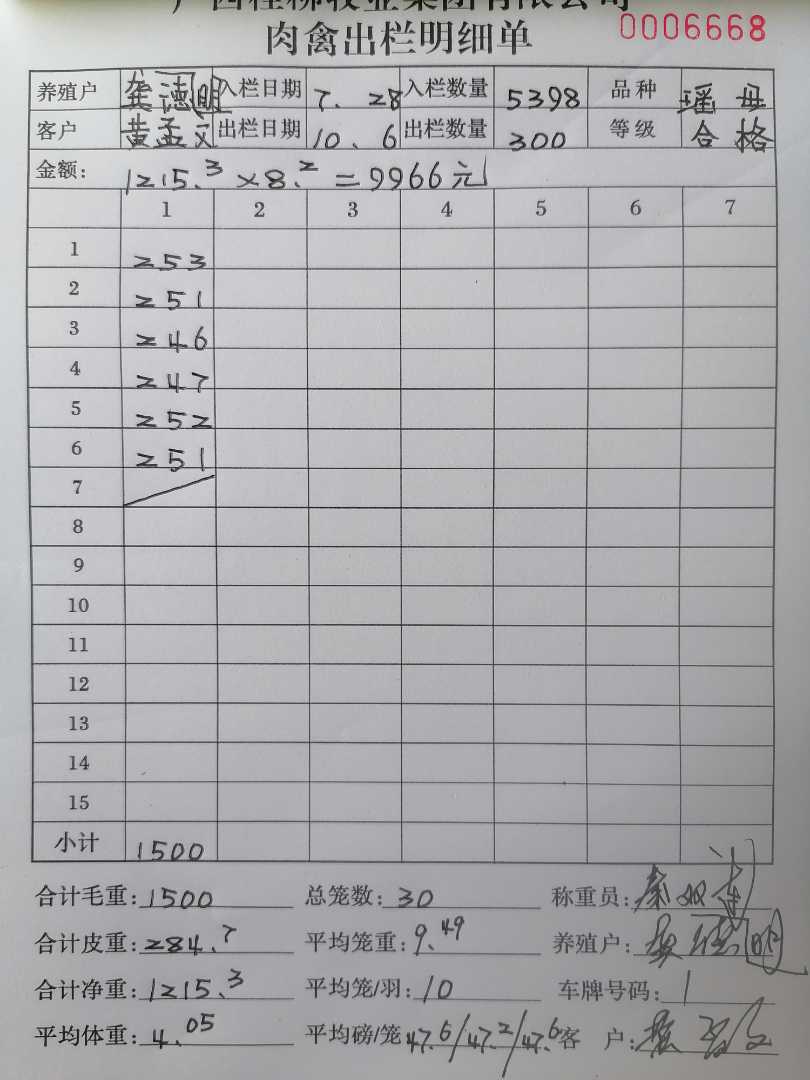 广西桂柳牧业集团有限公司
肉禽出栏明细单 0006668
养殖户 龚德明 入栏日期 7.28 入栏数量 5398 品种 瑶母
客户 黄孟文 出栏日期 10.6 出栏数量 300 等级 合格
金额: 1215.3×8.2=9966元
1 2 3 4 5 6 7
1 253
2 251
3 246
4 247
5 252
6 251
7
8
9
10
11
12
13
14
15
小计 1500
合计毛重: 1500 总笼数: 30 称重员:
合计皮重: 284.7 平均笼重: 9.49 养殖户:
合计净重: 1215.3 平均笼/羽: 10 车牌号码: 1
平均体重: 4.05 平均磅/笼 47.6/47.2/47.6 客 户: